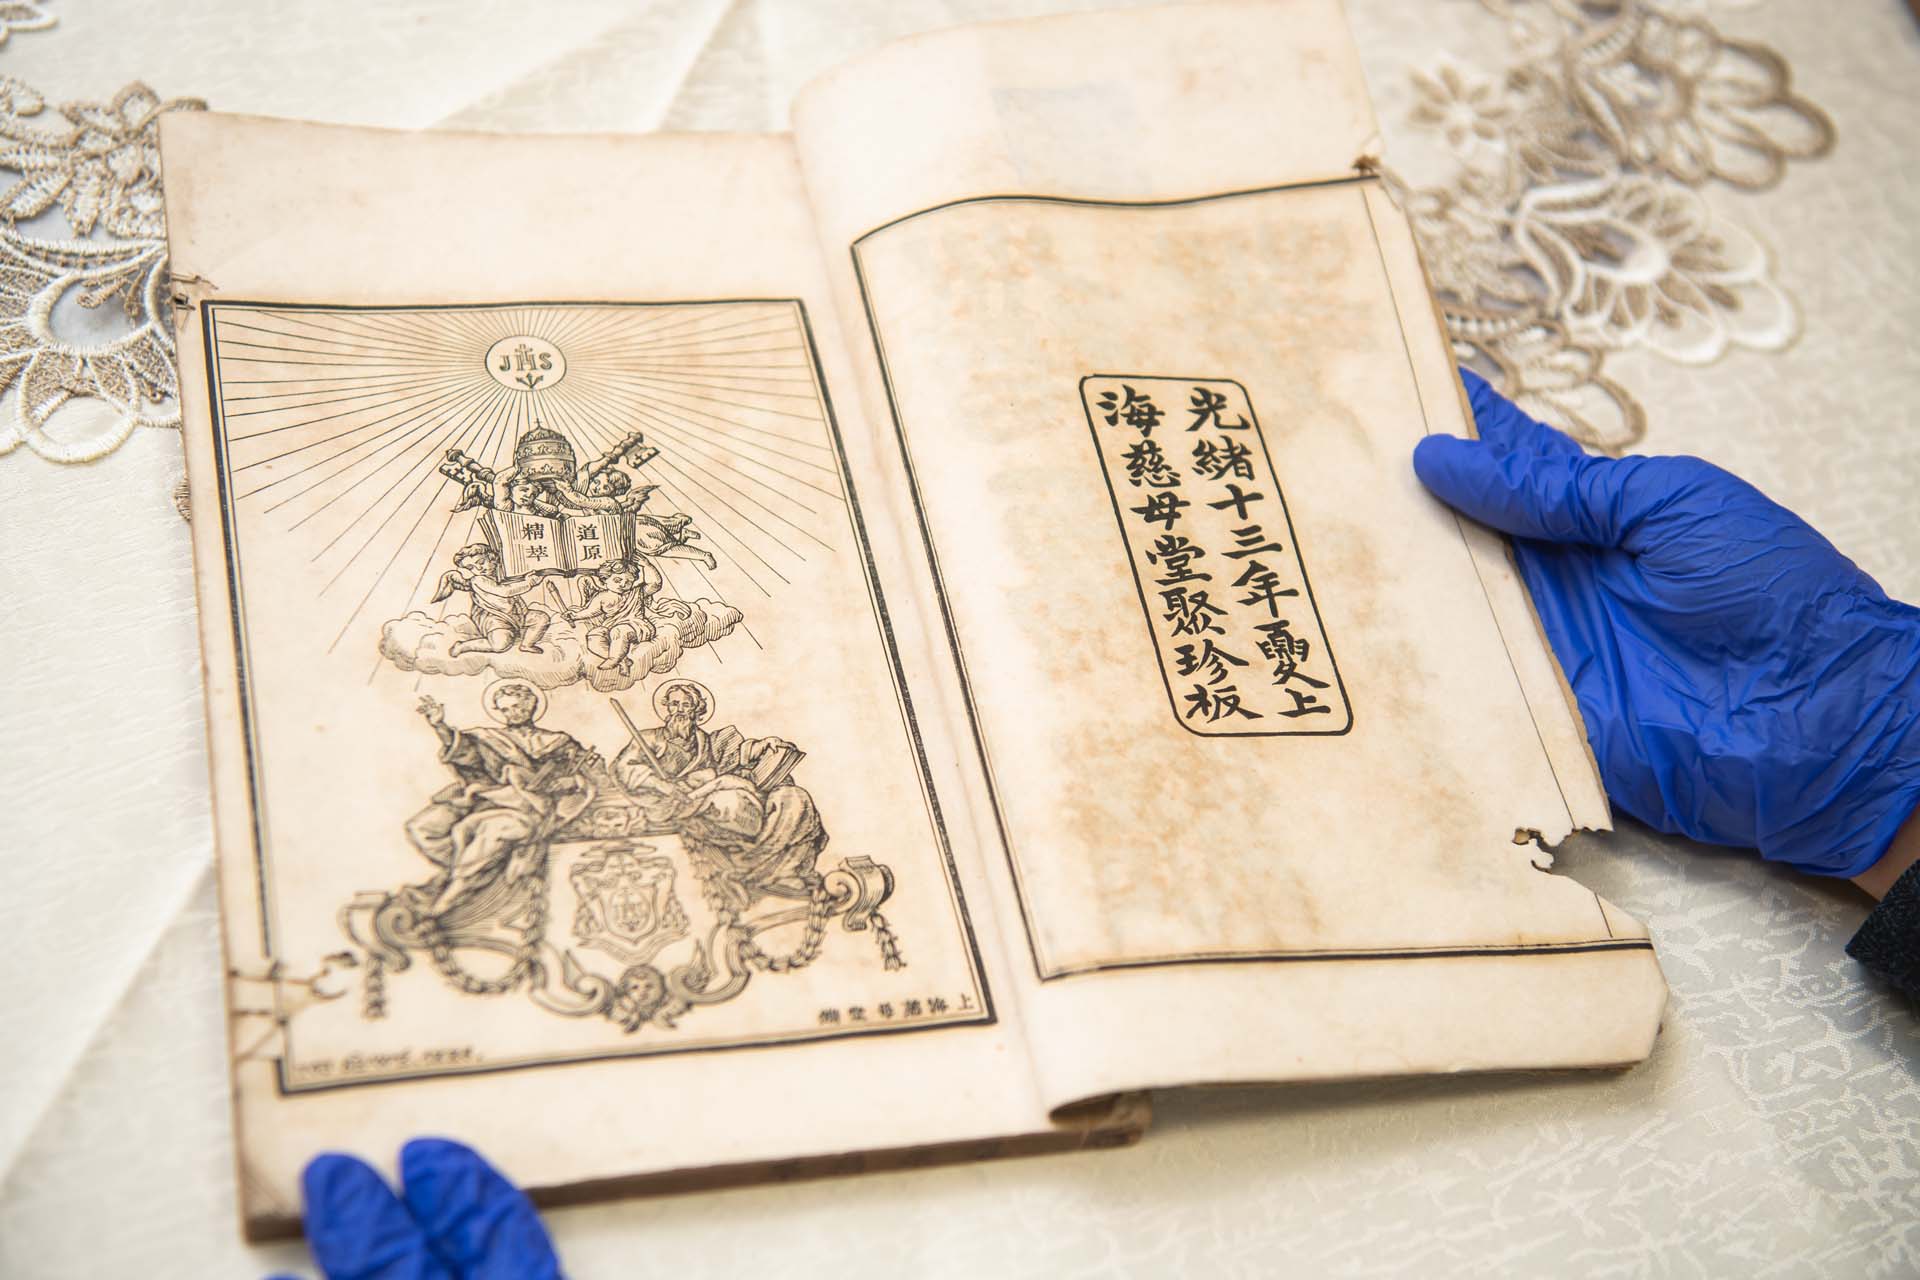 光緒十三年夓上
海慈母堂聚珍板
JHS
道原
精萃
上海慈母堂